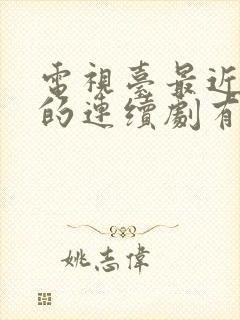 電視臺最近
的連續劇有
姚志偉